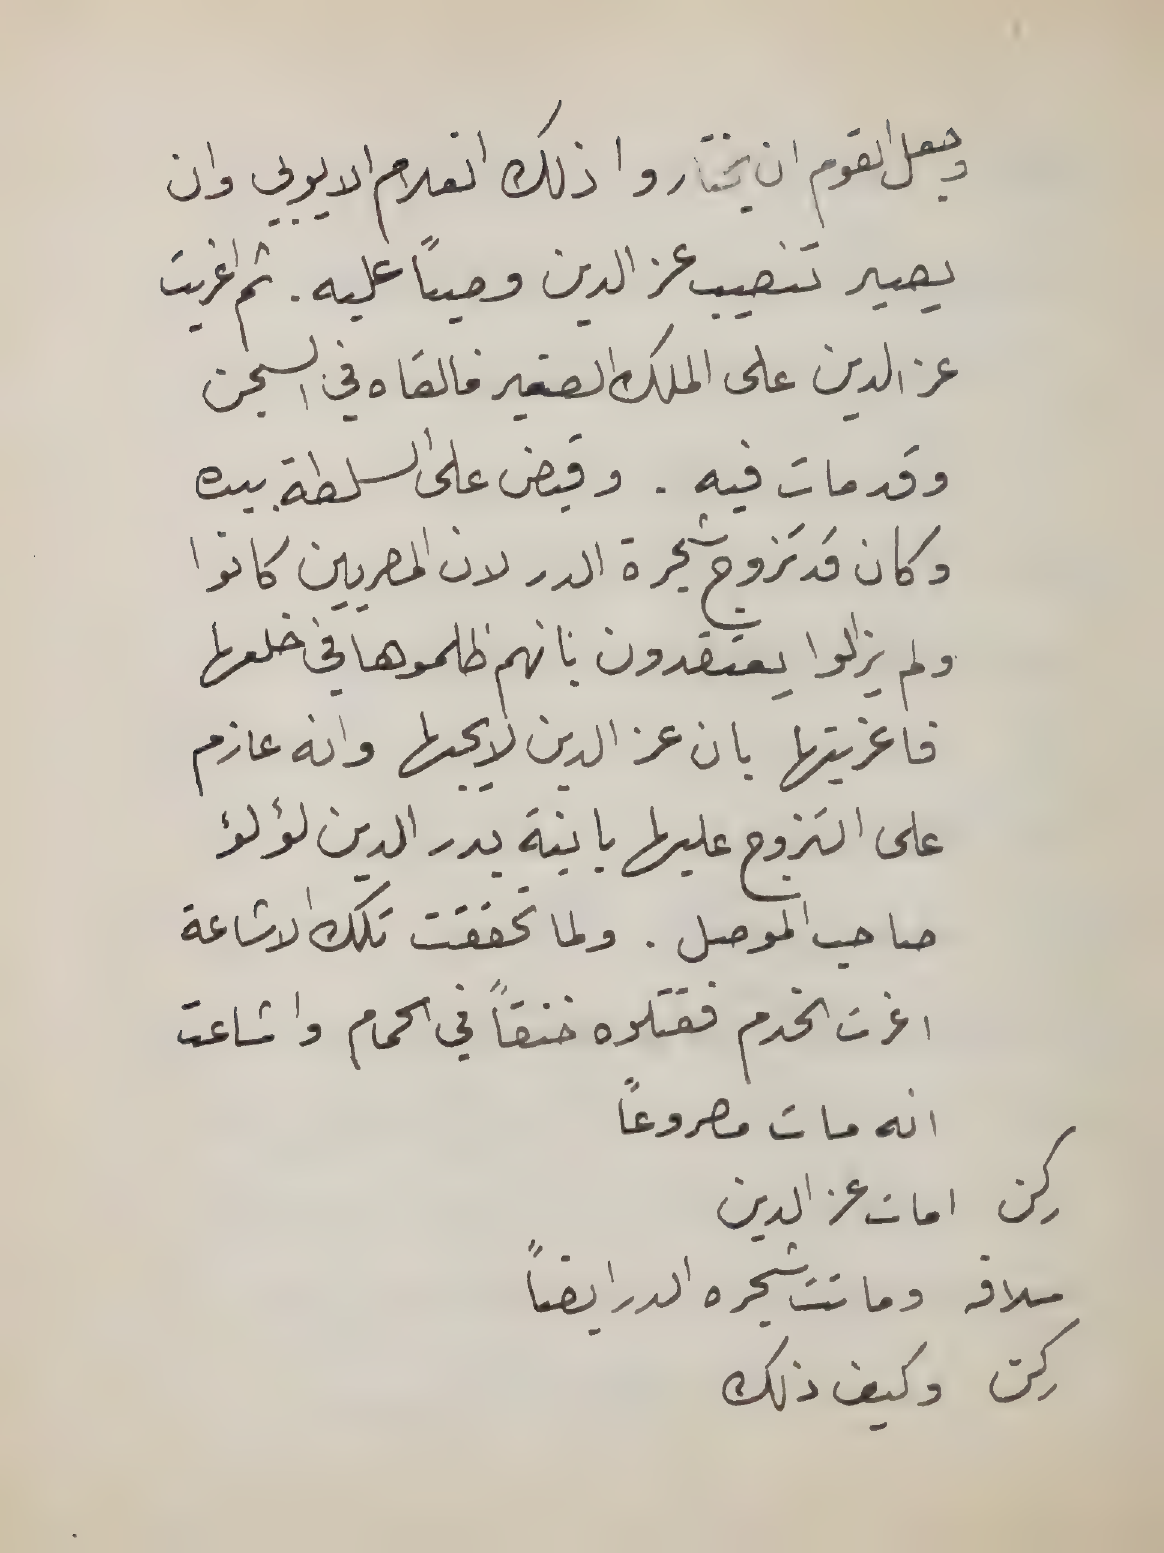 وجعل القوم ان يختاروا ذلك الغلام الايوبي وان
يصير تنصيب عز الدين وصياً عليه . ثم اغريت
عز الدين على الملك الصغير فالقاه في السجن
وقد مات فيه . وقبض على السلطة بيده
وكان قد تزوج شجرة الدر لان المصريين كانوا
ولم يزالوا يعتقدون بانهم ظلموها في خلعها
فاغريتها بان عز الدين لا يحبها وانه عازم
على التزوج عليها بابنة بدر الدين لؤلؤ
صاحب الموصل . ولما تحققت تلك الاشاعة
اغرت الخدم فقتلوه خنقاً في الحمام واشاعت
انه مات مصروعاً
ركن امات عز الدين
سلافه وماتت شجره الدر ايضاً
ركن وكيف ذلك